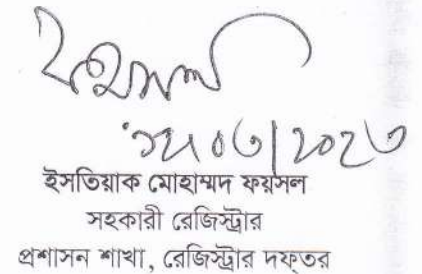 ফয়সল
ইসতিয়াক মোহাম্মদ ফয়সল
সহকারী রেজিস্ট্রার
প্রশাসন শাখা, রেজিস্ট্রার দফ্‌তর